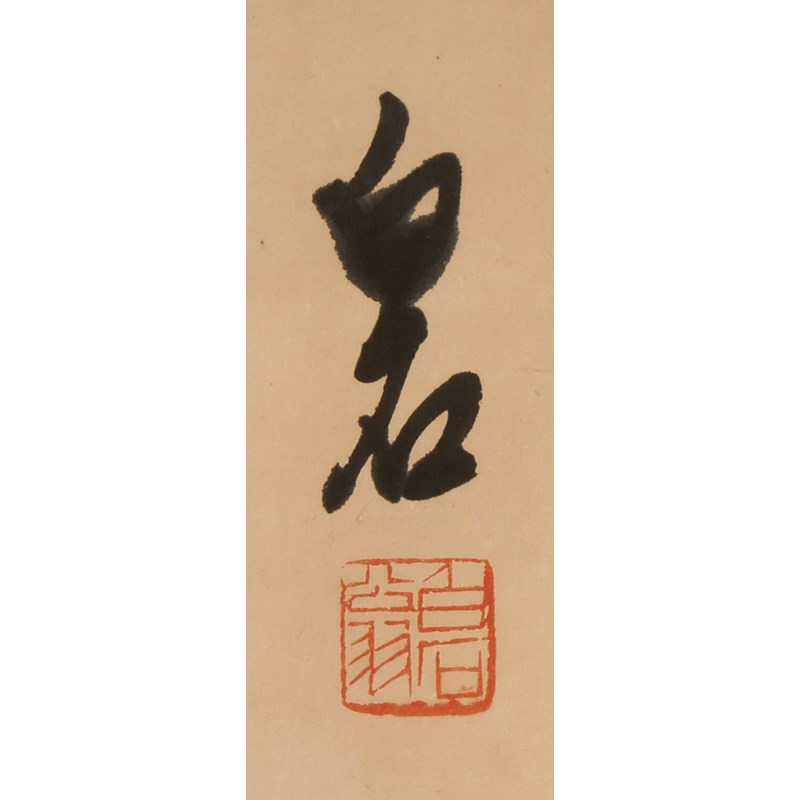 白石
白石翁